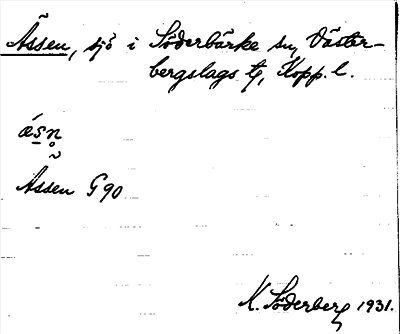 Åssen, sjö i Söderbärke sn, Väster-
bergslags tg, Kopp. l.
Åssen G 90
K. Söderberg 1931.